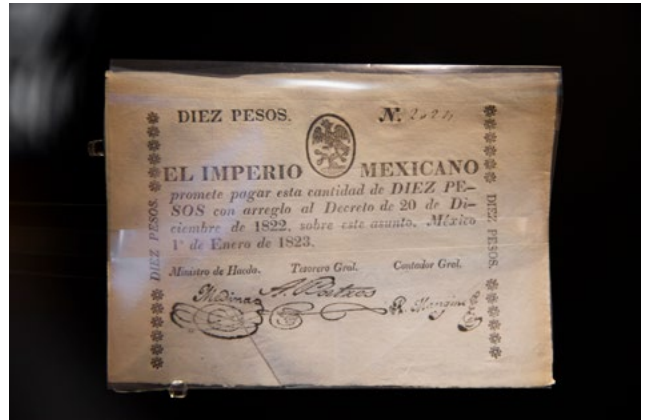 DIEZ PESOS. N.
EL IMPERIO MEXICANO
promete pagar esta cantidad de DIEZ PE-
SOS con arreglo al Decreto de 20 de Di-
ciembre de 1822, sobre este asunto. México
1º de Enero de 1823.
Ministro de Hacda. Tesorero Gral. Contador Gral.
Medina
DIEZ PESOS.
DIEZ PESOS.